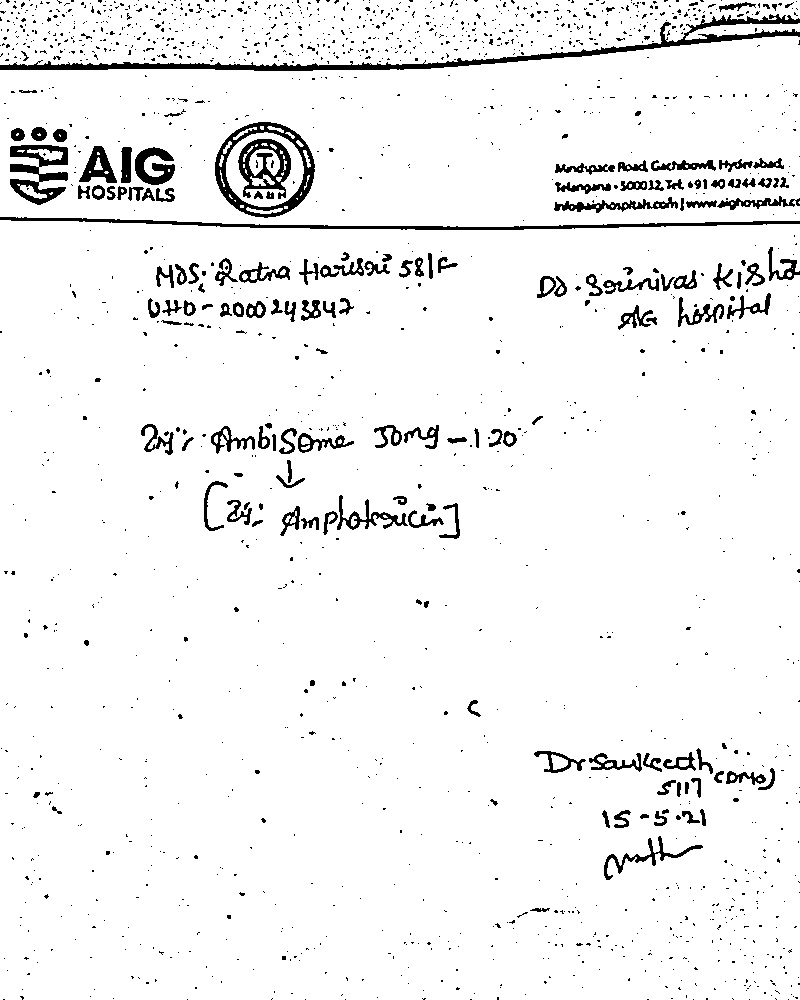 AIG
HOSPITALS
NABH
Mindspace Road, Gachibowli, Hyderabad,
Telangana - 500032, Tel: +91 40 4244 4222,
info@aighospitals.com | www.aighospitals.co
Mrs. Ratna 58/F
UHID - 2000243847
Dr. Srinivas Kisho
AIG hospital
Inj: AmbiSome 50mg - 120
[Inj: Amphotericin]
Dr. (DMO)
5117
15-5-21